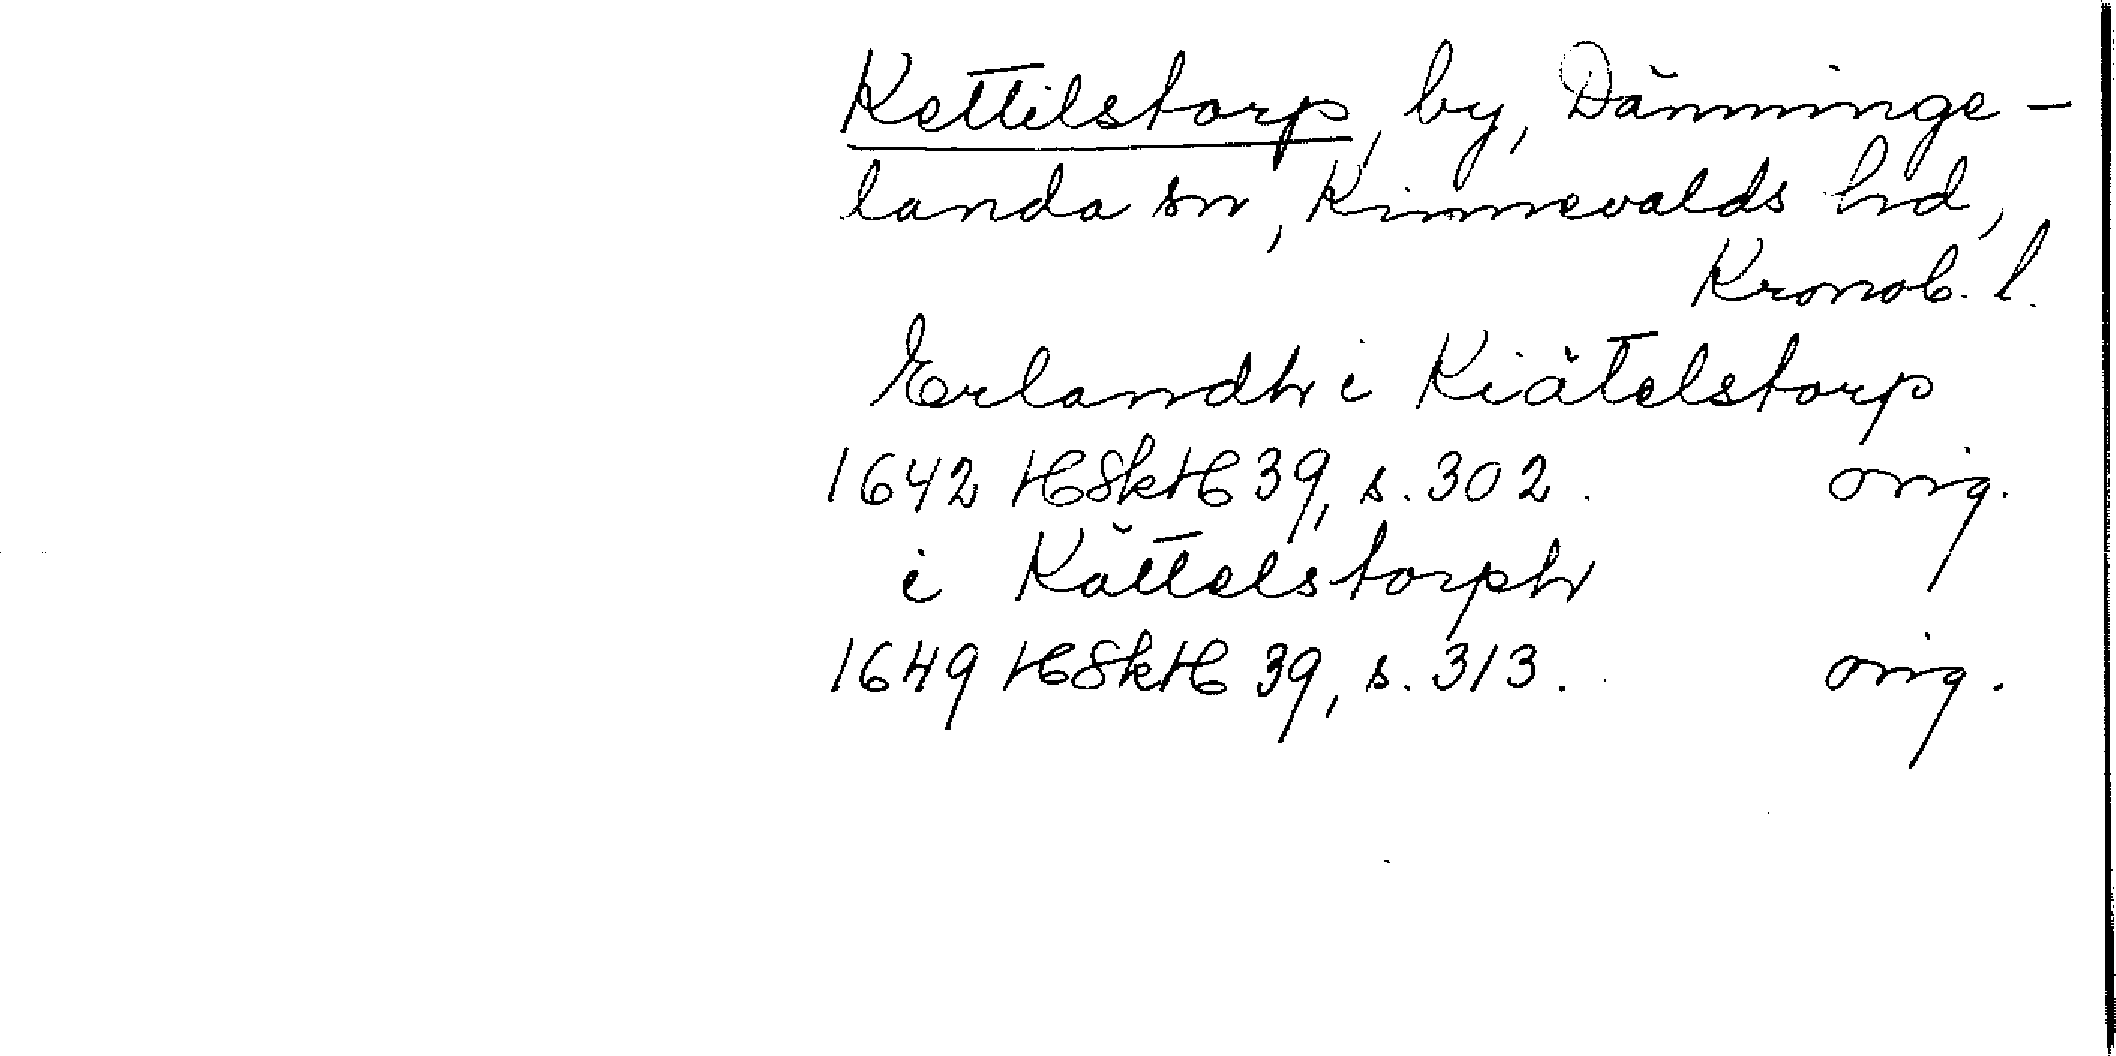 Kettilstorp, by, Dänninge-
landa sn, Kinnevalds hd,
Kronob. l.
Erlandh i Kiätelstorp
1642 HSkH 39, s. 302. orig.
i Kättelstorph
1649 HSkH 39, s. 313. orig.